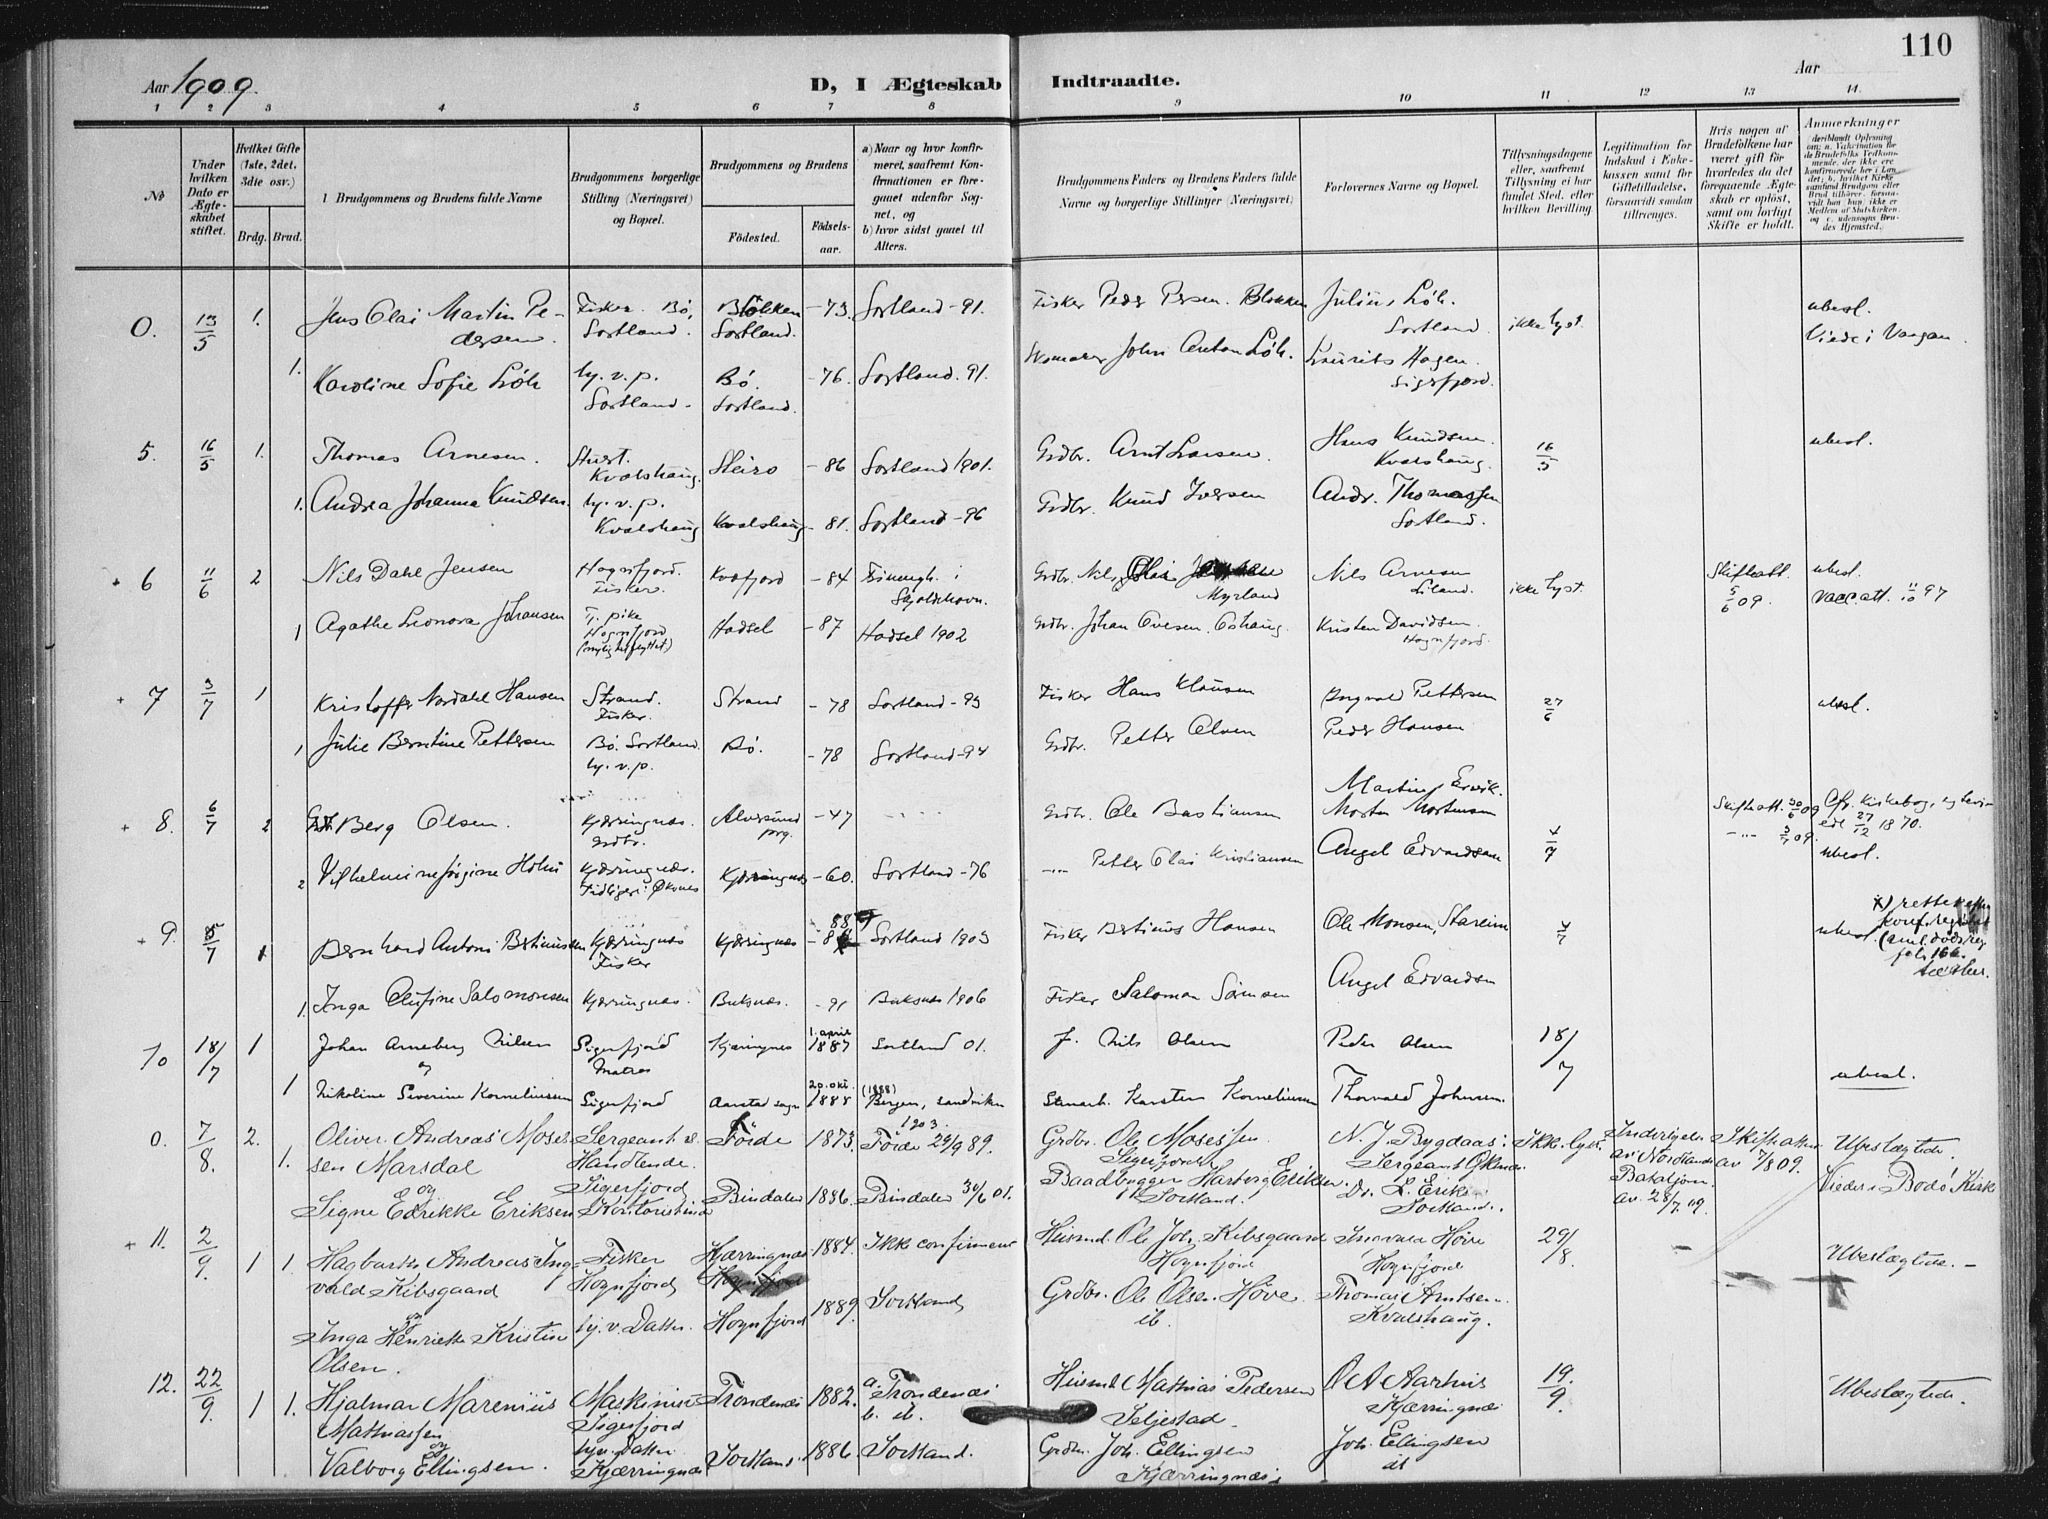 110
Aar 1909.
D, I Ægteskab Indtraadte.
Aar
1 2 3 4 5 6 7 8 9 10 11 12 13 14.
No
Under hvilken Dato er Ægteskabet stiftet.
Hvilket Gifte (1ste, 2det, 3die osv.)
Brdg. Brud.
1 Brudgommens og Brudens fulde Navne
Brudgommens borgerlige Stilling (Næringsvei) og Bopæl.
Brudgommens og Brudens
Fødested.
Fødselsaar.
a) Naar og hvor konfirmeret, saafremt Konfirmationen er foregaaet udenfor Sognet, og
b) hvor sidst gaaet til Alters.
Brudgommens Faders og Brudens Faders fulde Navne og borgerlige Stillinger (Næringsvei)
Forlovernes Navne og Bopæl.
Tillysningsdagene eller, saafremt Tillysning ei har fundet Sted, efter hvilken Bevilling.
Legitimation for Indskud i Enkekassen samt for Giftetilladelse, forsaavidt saadan tiltrænges.
Hvis nogen af Brudefolkene har været gift før hvorledes da det foregaaende Ægteskab er opløst, samt om lovligt Skifte er holdt.
Anmærkninger
0. 13/5 1. Jens Olai Martin Pe- Fisker. Bø, Blokken -73. Sortland -91. Fisker Peder Persen. Blokken Julius Løh. ikke lyst. ubesl.
dersen. Sortland. Sortland. Sortland. Viede i Vaagan.
1. Karoline Sofie Løh hj. v. p. Bø. -76. Sortland. 91. John Anton Løh. Laurits Hagen.
Sortland. Sortland. Sigerfjord.
5. 16/5 1. Thomas Arnesen. Kvalshaug. Steiro -86 Sortland 1901. Grdbr. Arnt Larsen. Hans Knudsen. 16/5 ubesl.
Kvalshaug.
1. Andrea Johanna Knudsen. hj. v. p. Kvalshaug -81. Sortland -96 Grdbr. Knud Iversen Andr. Thomassen
Kvalshaug Sortland.
+ 6 11/6 2 Nils Dahl Jensen Hognfjord. Kvæfjord -84 i Grdbr. Nils Olai Nils Arnesen ikke lyst. Skifteatt. ubesl.
Fisker. Myrland Liland. 5/6 09. vacc. att. 11/10 97
1 Agathe Leonora Johansen T. pike Hadsel -87 Hadsel 1902 Grdbr. Johan Ovesen. Kristen Davidsen.
Hognfjord Hognfjord.
+ 7 3/7 1 Kristoffer Nordahl Hansen Strand. Strand -78 Sortland -93 Fisker Hans Klausen Ingvald Pettersen 27/6 ubesl.
Fisker.
1 Julie Berntine Pettersen Bø. Sortland. Bø. -78 Sortland -94 Grdbr. Petter Olsen Peder Hansen
hj. v. p.
Martin Ervik.
+ 8. 6/7 2 Berg Olsen. Kjæringnæs. Alversund -47 Grdbr. Ole Bastiansen Morten Mortensen 4/7 Skifteatt. 30/6 09
Grdbr. prg. 27/12 1870.
2 Vilhelmine Jørgine Holm Kjæringnæs. Kjæringnæs -60. Sortland -76 Petter Olai Kristiansen Angel Edvardsen ubesl.
Tidligere: Øksnes
+ 9. 5/7 1 Bernhard Antoni Bertinussen Kjæringnæs Kjæringnæs -88 Sortland 1903 Fisker Bertinus Hansen Ole Monsen, Starein 4/7 ubesl.
Fisker
1. Inga Olufine Salomonsen Kjæringnæs. Buksnæs. -91 Buksnæs 1906 Fisker Salomon Sørensen Angel Edvardsen
10 18/7 1 Johan Arneberg Nilsen Sigerfjord Kjæringnes 1. april 1887 Sortland 01. f. Nils Olsen Peder Olsen 18/7 ubesl.
og Matros
1 Nikoline Severine Korneliussen Sigerfjord Aarstad sogn 20. okt. 1888 (1888) Bergen, Sandviken Karsten Korneliussen Thorvald Johnsen.
1903.
0. 7/8. 2. Oliver Andreas Moses- Sergeant & Førde 1873. Førde 29/9 89. Grdbr. Ole Mosessen. N. J. Bygdaas. Ikke lyst. Skifteatten Ubeslægtede.
1. sen Marsdal Handlende. Sigerfjord Sergeant av Nordlands av 7/8 09.
og Sigerfjord
Signe Edrikke Eriksen Kontoristinde Bindalen 1886. Bindalen 30/6 01. Baadbygger Hartvig Eriksen. Dr. L. Erik Bataljon. Viede i Bodø Kirke
Sortland. Sortland. av. 28/7 09.
+ 11. 2/9. 1 1 Hagbarth Andreas Ing- Fisker Kjærringnæs 1884. Ikke confirmeret Huusmd. Ole Joh. Kibsgaard Ingvald Høive 29/8. Ubeslægtede. -
vald Kibsgaard Hognfjord Hognfjord Hognfjord Hognfjord
og
Inga Henriette Kristine hj. v. Datter. Hognfjord 1889. Sortland Grdbr. Ole Olsen Høve Thomas Arntsen.
Olsen. ib. Kvalshaug.
12. 22/9. 1 1. Hjalmar Marenius Maskinist Trondenæs 1882. a. Trondenæs Huusmd. Mathias Pedersen O A Aarhus 19/9. Ubeslægtede.
Mathiassen Sigerfjord b. ib. Seljestad Kjærringnæs
og hjv. Datter
Valborg Ellingsen. Kjærringnæs Sortland. 1886. Sortland. Grdbr. Joh. Ellingsen Joh. Ellingsen
Kjærringnæs